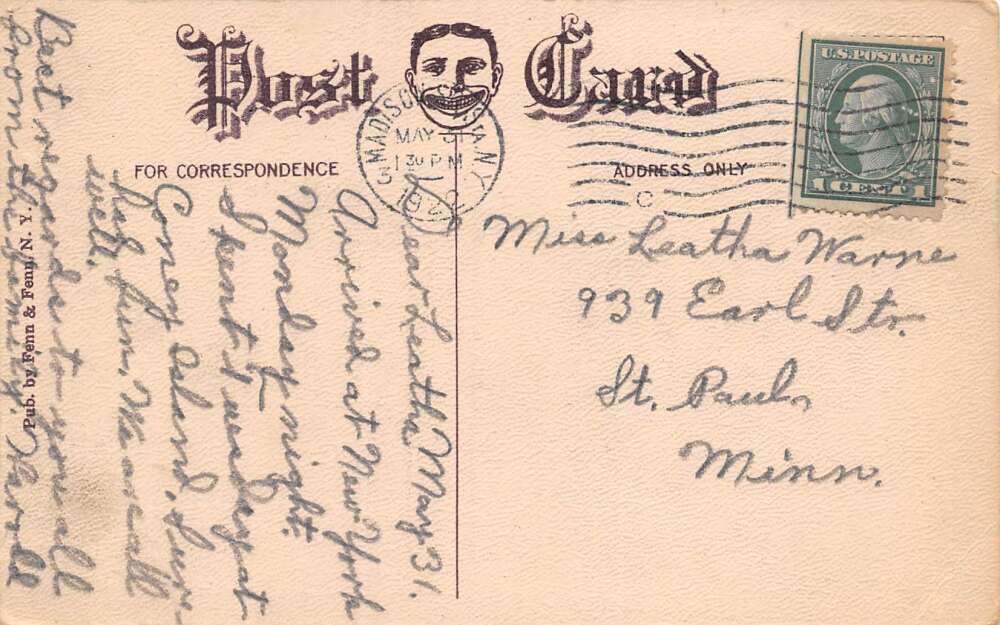 Post Card
MADISON SQ. STA. N.Y.
MAY 31
130 PM
3
C
U.S. POSTAGE
1 CENT 1
FOR CORRESPONDENCE
ADDRESS ONLY
C
Dear Leatha May 31.
Arrived at New York
Monday night.
Spent Tuesday at
Coney Island. Sure
had fun. We are all
well.
Best regards to you all
from the family. Harold
Pub. by Fenn & Fenn, N. Y.
Miss Leatha Warne
939 Earl Str.
St. Paul,
Minn.